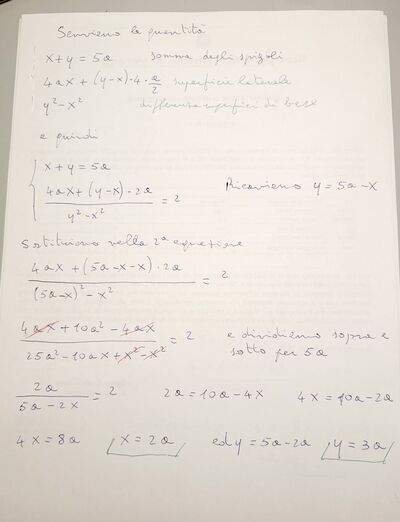 Scriviamo le quantità
x+y = 5a somma degli spigoli
4ax + (y-x)·4·a/2 superficie laterale
y²-x² differenza superfici di base
e quindi
x+y = 5a
(4ax + (y-x)·2a)/(y²-x²) = 2 Ricaviamo y = 5a-x
Sostituiamo nella 2ª equazione
(4ax + (5a-x-x)·2a)/((5a-x)²-x²) = 2
(4ax+10a²-4ax)/(25a²-10ax+x²-x²) = 2 e dividiamo sopra e
sotto per 5a
2a/(5a-2x) = 2 2a = 10a-4x 4x = 10a-2a
4x = 8a x = 2a ed y = 5a-2a y = 3a